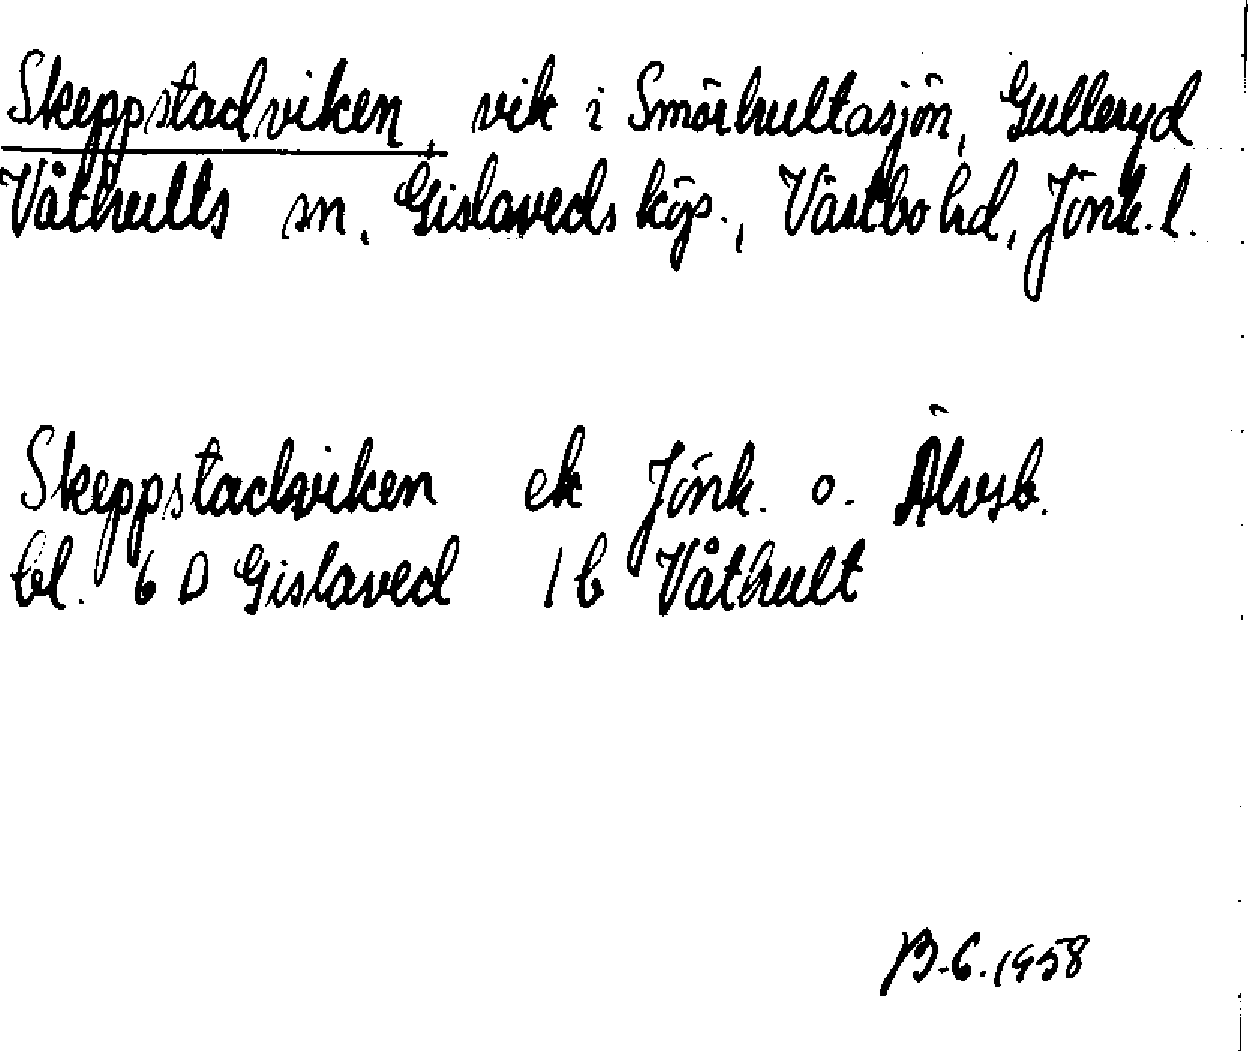 Skeppstadviken, vik i Smörhultasjön, Gulleryd
Våthults sn, Gislaveds köp., Västbo hd, Jönk. l.
Skeppstadviken ek Jönk. o. Älvsb.
bl. 6 D Gislaved 1 b Våthult
B.C. 1958